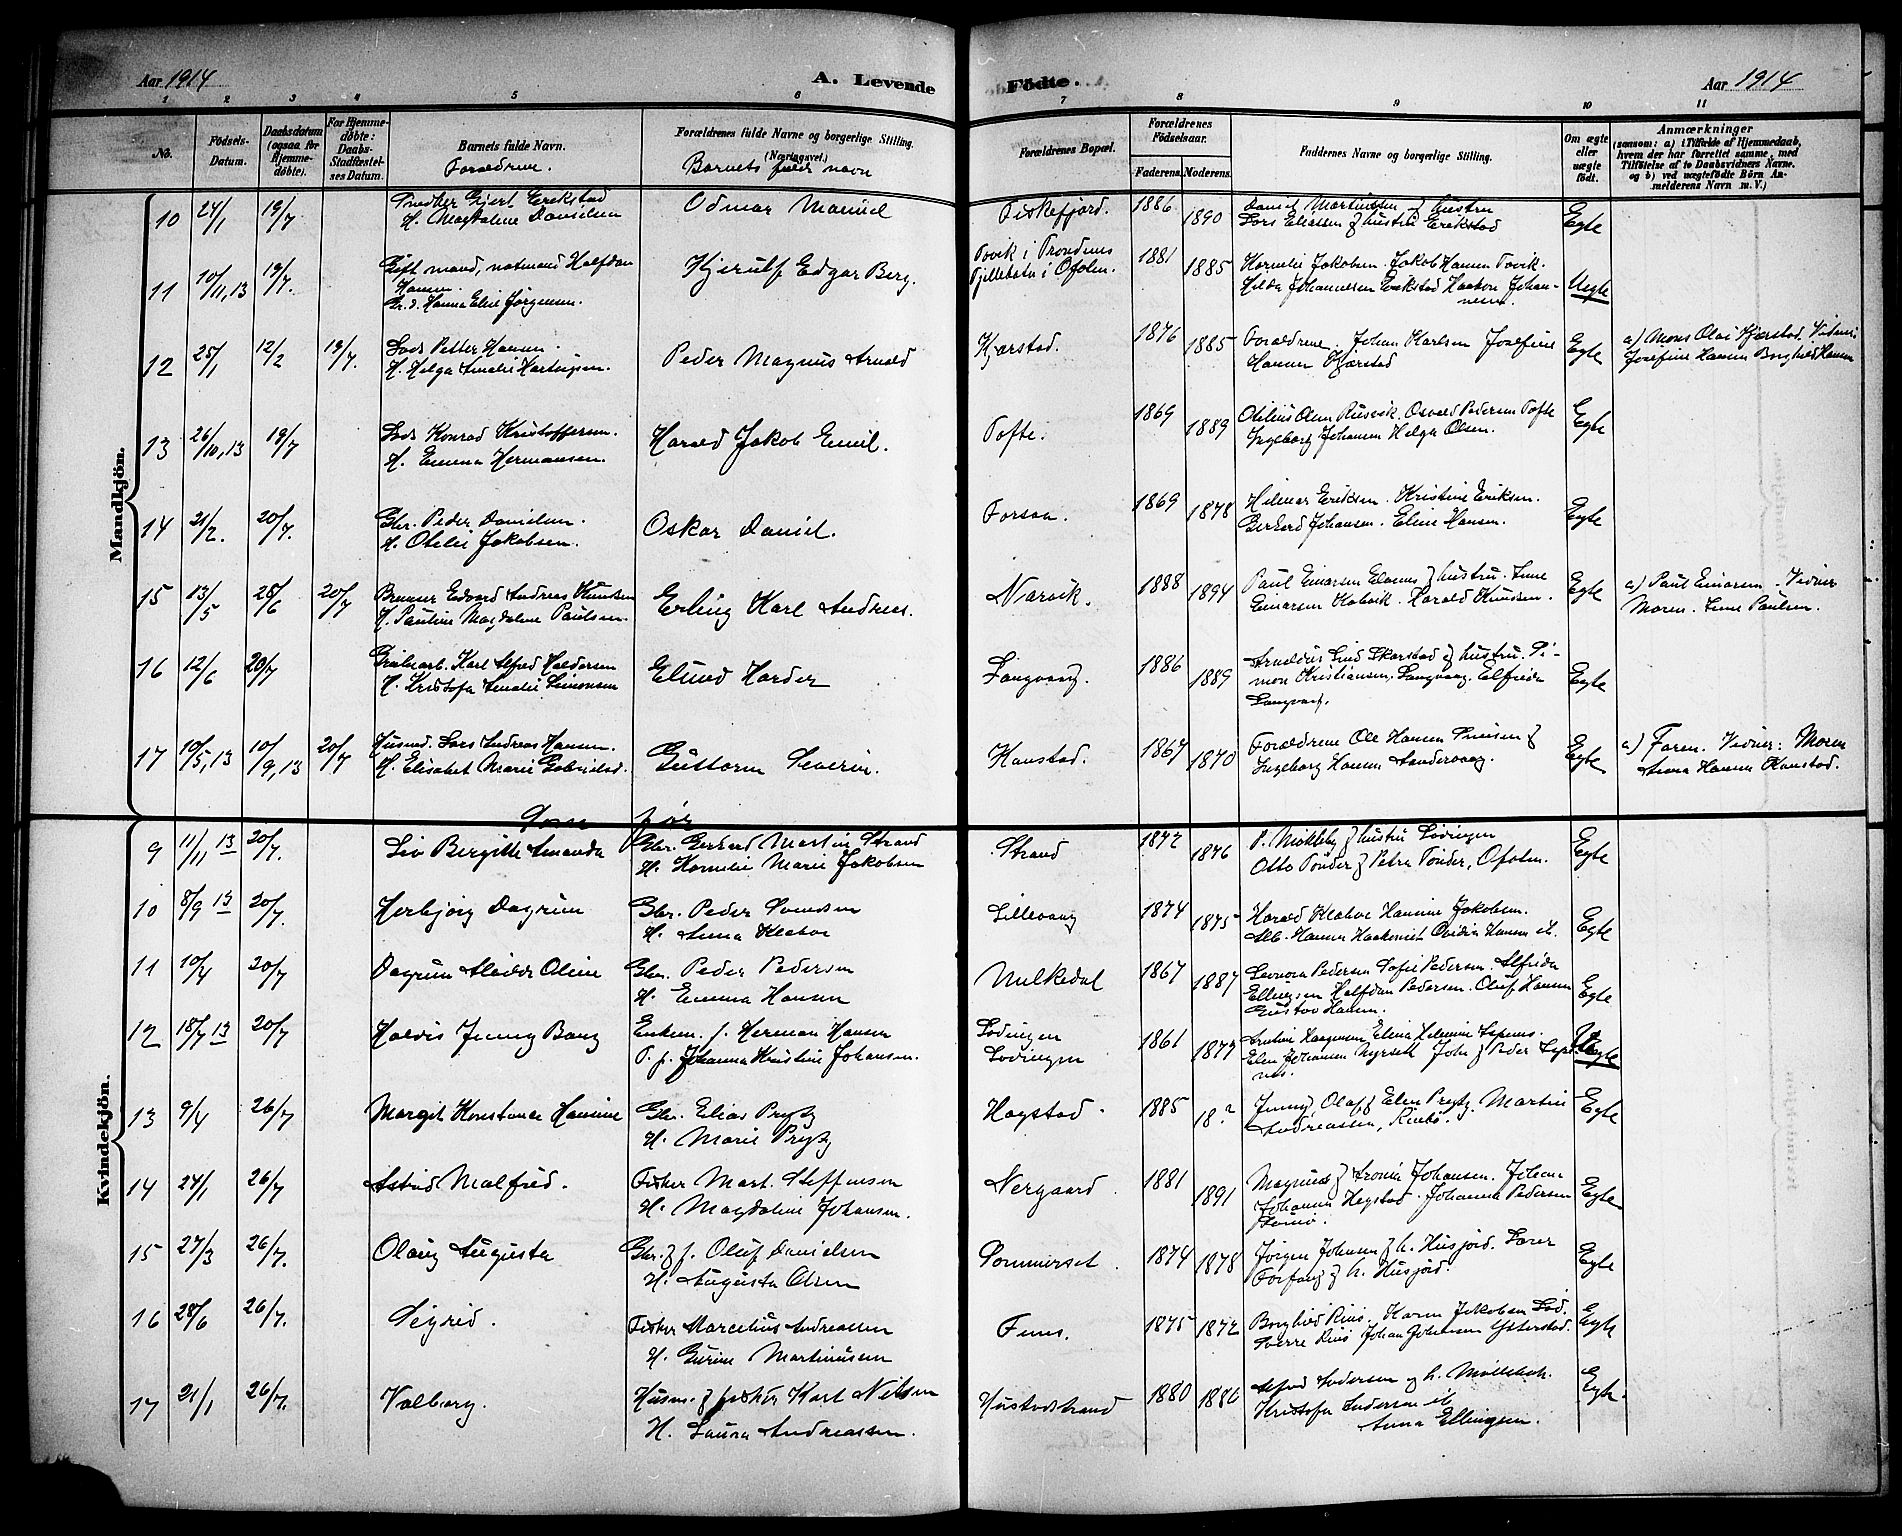 Aar 1914
A. Levende
Födte.
Aar 1914
1 2 3 4 5 6 7 8 9 10 11
No.
Födsels-Datum.
Daabsdatum (ogsaa for Hjemmedøbte).
For Hjemmedøbte: Daabs-Stadfæstelses Datum.
Barnets fulde Navn.
Forældrene.
Forældrenes fulde Navne og borgerlige Stilling. (Næringsvei.)
Barnets fulde navn
Forældrenes Bopæl.
Forældrenes Födselsaar.
Faderens. Moderens.
Faddernes Navne og borgerlige Stilling.
Om ægte eller uægte födt.
Anmærkninger
(saasom: a) i Tilfælde af Hjemmedaab, hvem der har forrettet samme, med Tilföielse af to Daabsvidners Navne. og b) ved uægtefödte Börn Anmelderens Navn m. V.)
Mandkjön.
10 24/1 19/7 Gjert Erikstad
H. Magdalene Danielsen
Odmar Manuel
Fiskefjord. 1886 1890
Daniel Martinssen & hustru
Lars Eliassen & hustru Erikstad
Egte
11 10/11,13 19/7. Gift mand, notmand Halfdan
Hansen.
Hanna Elise Jørgensen.
Hjerulf Edgar Berg.
Tovik i Trondenes
Fjeldbatn i Ofoten.
1881 1885
Kornelie Jakobsen. Jakob Hansen Tovik.
Hilda Johannesen Erikstad Haakon Johan-
nesen.
Uegte
12 25/1 12/2 19/7. Lods Petter Hansen.
H. Helga Amalie Hartvigsen.
Peder Magnus Arnold
Kjærstad. 1876 1885
Forældrene. Johan Karlsen Josefine
Hansen Kjærstad
Egte
a) Mons Olai Kjærstad. Vidner:
Josefine Hansen Borghild Hansen
13 26/10,13 19/7 Lods Konrad Kristoffersen.
H. Emma Hermansen.
Harald Jakob Emil.
Tofte. 1869 1889
Otelius Olsen Rusvik. Osvald Pedersen Tofte
Ingeborg Johansen Helga Olsen.
Egte
14 21/2. 20/7. Gbr. Peder Danielsen.
H. Otelie Jakobsen.
Oskar Daniel.
Forsaa. 1869 1878
Hilmar Eriksen. Kristine Eriksen.
Gerhard Johansen. Eline Hansen.
Egte
15 13/5 25/6 20/7 Edvard Andreas Knudsen
H. Pauline Magdalene Paulsen.
Erling Karl Andreas.
Narvik. 1888 1894
Paul Einarsen & hustru. Line
Einarsen Kobvik. Harald Knudsen.
Egte
a) Paul Einarsen. Vidner
Moren. Line Paulsen.
16 12/6 20/7 Karl Alfred Haldorsen
H. Kristofa Amalie Simonsen
Elund Harder
Langvaag. 1886 1889
Arnoldus Lind Skarstad & hustru. Si-
mon Kristiansen, Langvaag. Elfrida
Langvaag.
Egte
17 10/5,13 10/9,13 20/7 Husmd. Lars Andreas Hansen.
H. Elisabet Marie Gabrielsd.
Guttorm Severin.
Kanstad. 1867 1870
Forældrene Ole Hansen &
Ingeborg Hansen Sandervaag.
Egte
a) Faren. Vidner: Moren
Anna Hansen Kanstad.
Som før
Kvindekjön.
9 11/11 13 20/7. Liv Bergitte Amanda
Gbr. Gerhard Martin Strand
H. Kornelie Marie Jakobsen
Strand 1872 1876
P. Mökleby & hustru Lödingen
Otto Tönder & Petra Tönder, Ofoten.
Egte
10 8/9 13 20/7. Herbjørg Dagrun
Gbr. Peder Svendsen
H. Anna Klæboe
Lillevaag 1874 1875
Harald Klæboe Hansine Jakobsen.
Alb. Hansen Haakonset Ovidia Hansen st.
Egte
11 10/4 20/7 Dagrun Alvilde Oline
Gbr. Peder Pedersen
H. Emma Hansen
Nulkedal 1867 1887
Leonora Pedersen Sofie Pedersen. Alfrida
Ellingsen Halfdan Pedersen. Oluf Hansen
Gustav Hansen.
Egte
12 18/7 13 20/7 Haldis Jenny Bang
Enkem. f. Herman Hansen
P. p. Johanna Kristine Johansen.
Lødingen
Lødingen
1861 1879
Uegte
13 9/4 26/7 Margit Konstanse Hansine
Gbr. Elias Prytz
H. Marie Prytz
Hagstad. 1885 18?
Jenny, Olaf & Elen Prytz. Martin
Andreassen, Rinbø.
Egte
14 24/1 26/7 Astrid Malfred.
Fisker Mart. Steffensen
H. Magdalene Johansen.
Nergaard. 1881 1891
Magnus & Johansen. Johan
Johansen Hegstad. Johanna Pedersen
Egte
15 27/3 26/7. Olaug Augusta
Gbr. & f. Oluf Danielsen
H. Augusta Olsen
Sommerset. 1874 1878
Jørgen Johnsen & h. Husjord. Lorer
Forfang & h. Husjord.
Egte
16 28/6 26/7. Sigrid.
Fisker Marcelius Andreassen
H. Gurine Martinussen
Fenes. 1875 1872
Borghild Rinø. Karen Jakobsen Lød.
Sverre Rinø Johan Johansen Ytterstad.
Egte
17 21/1 26/7. Valborg.
Husm. & fisker Karl Nilsen
H. Laura Andreassen.
Hustadstrand 1880 1886
Alfred Andersen og h. Mölleboh.
Kristofa Andersen st
Anna Ellingsen.
Egte.